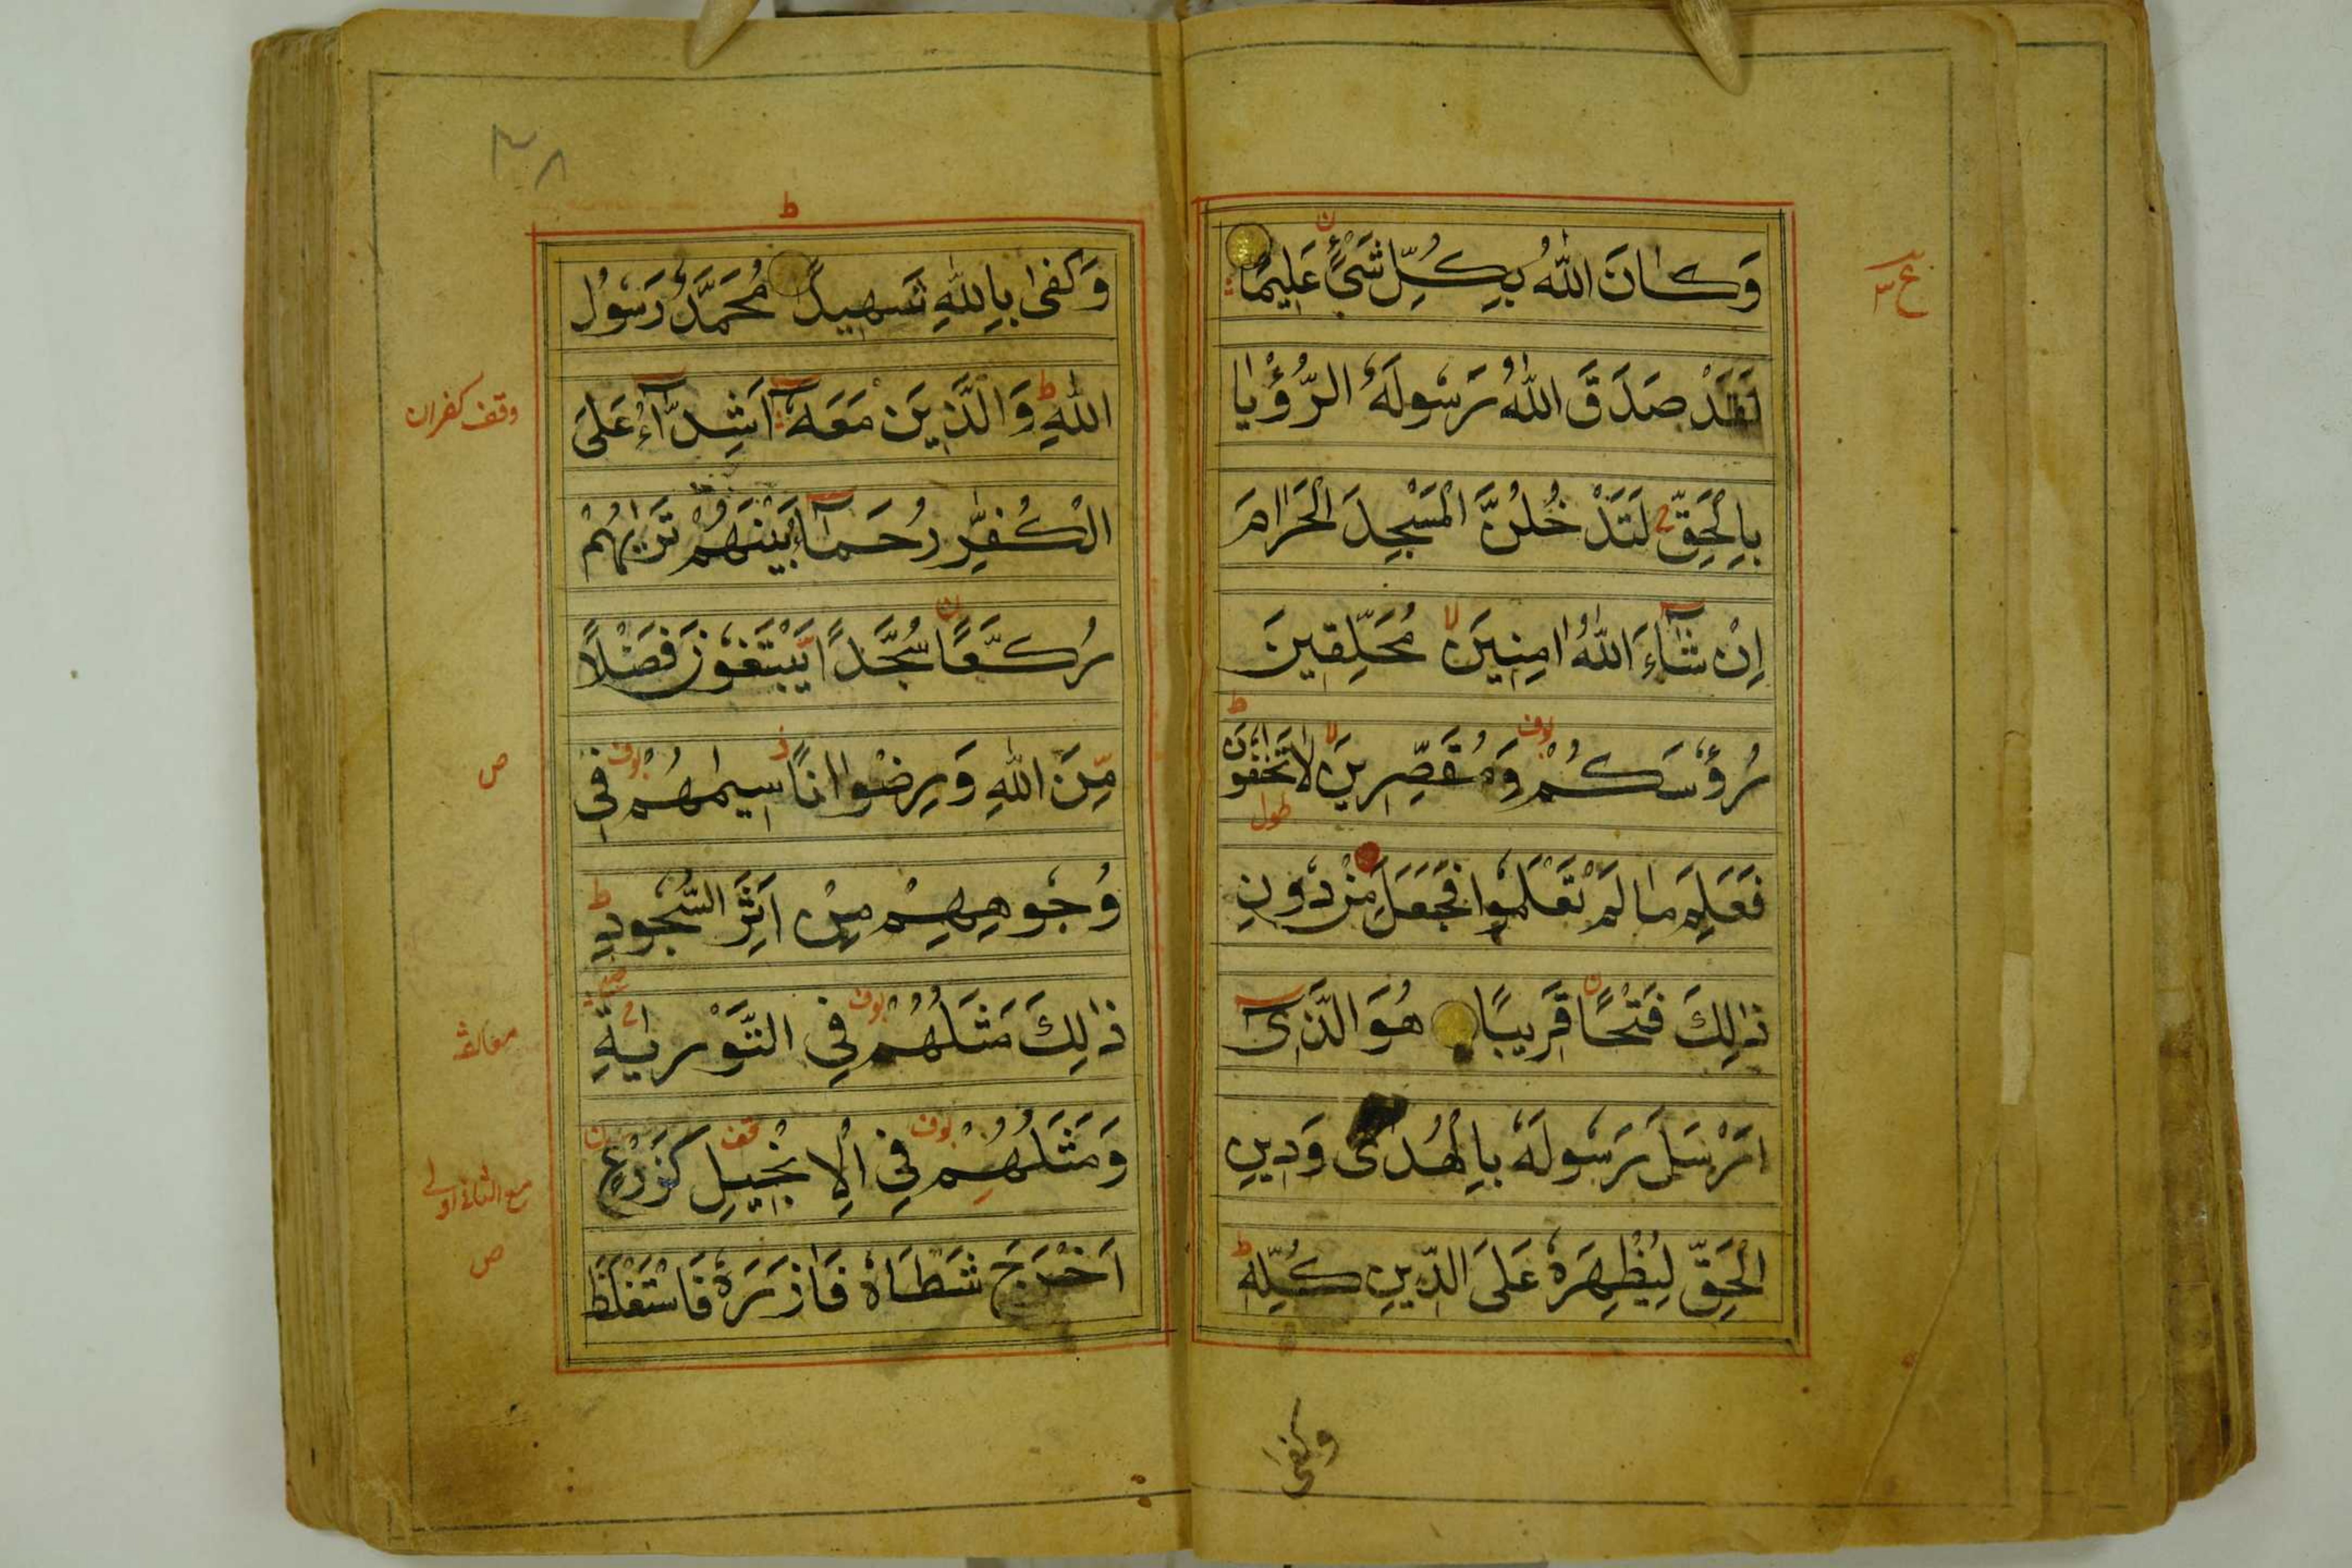 وَكَانَ اللّٰهُ بِكُلِّ شَیْءٍ عَلِیْمًا
لَقَدْ صَدَقَ اللّٰهُ رَسُولَهُ الرُّؤْیَا
بِالْحَقِّ لَتَدْخُلُنَّ الْمَسْجِدَ الْحَرَامَ
اِنْ شَآءَ اللّٰهُ اٰمِنِینَ مُحَلِّقِینَ
رُؤُسَكُمْ وَمُقَصِّرِینَ لَا تَخَافُونَ
فَعَلِمَ مَا لَمْ تَعْلَمُوا فَجَعَلَ مِنْ دُونِ
ذٰلِكَ فَتْحًا قَرِیبًا هُوَ الَّذِیٓ
اَرْسَلَ رَسُولَهُ بِالْهُدٰی وَدِینِ
الْحَقِّ لِیُظْهِرَهُ عَلَی الدِّینِ كُلِّهٖ
وکفی
وَكَفٰی بِاللّٰهِ شَهِیدًا مُحَمَّدٌ رَسُولُ
اللّٰهِ وَالَّذِینَ مَعَهٓ اَشِدَّآءُ عَلَی
الْكُفَّارِ رُحَمَآءُ بَیْنَهُمْ تَرٰیهُمْ
رُكَّعًا سُجَّدًا یَّبْتَغُونَ فَضْلًا
مِّنَ اللّٰهِ وَرِضْوَانًا سِیمٰهُمْ فِی
وُجُوهِهِمْ مِنْ اَثَرِ السُّجُودِ
ذٰلِكَ مَثَلُهُمْ فِی التَّوْرٰیةِ
وَمَثَلُهُمْ فِی الْاِنْجِیلِ كَزَرْعٍ
اَخْرَجَ شَطْاَهُ فَاٰزَرَهُ فَاسْتَغْلَظَ
وقف کفران
ص
ص